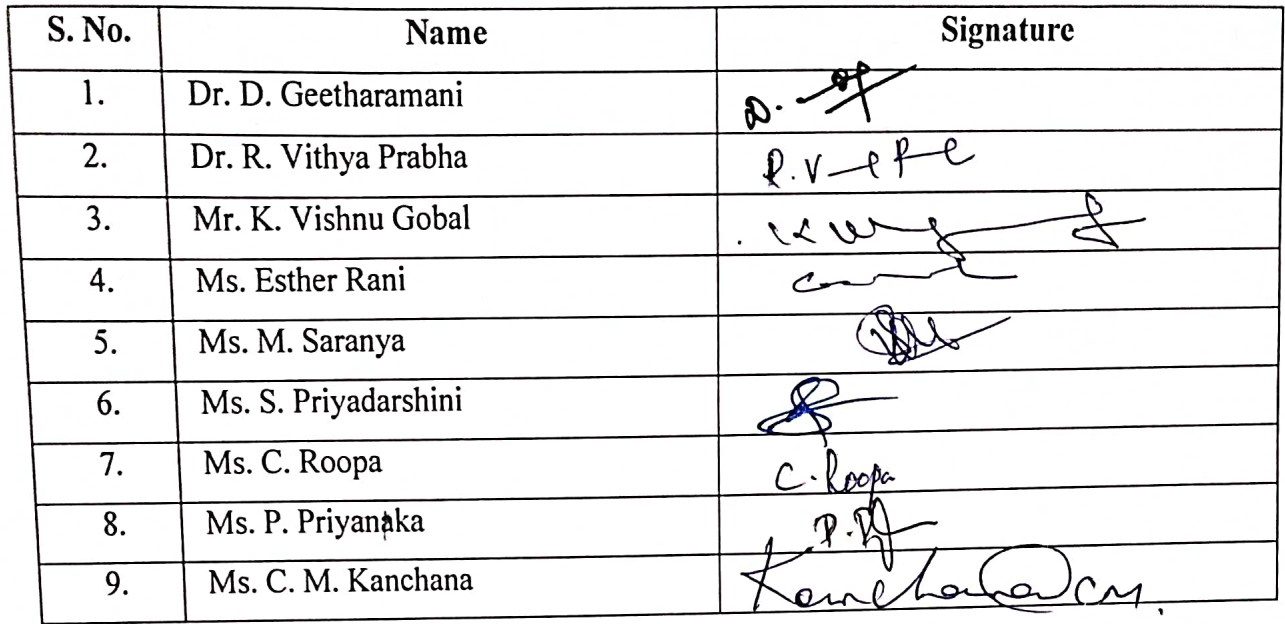 S. No. Name Signature
1. Dr. D. Geetharamani D.
2. Dr. R. Vithya Prabha R. V
3. Mr. K. Vishnu Gobal K
4. Ms. Esther Rani
5. Ms. M. Saranya
6. Ms. S. Priyadarshini
7. Ms. C. Roopa C. Roopa
8. Ms. P. Priyanaka P.
9. Ms. C. M. Kanchana Kanchana CM.